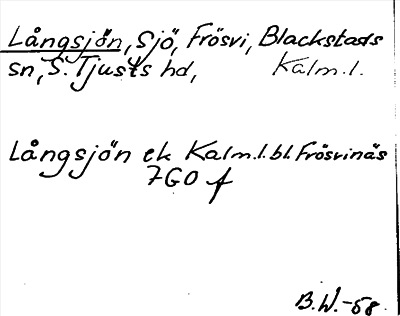 Långsjön, Sjö, Frösvi, Blackstads
sn, S. Tjusts hd, Kalm.l.
Långsjön ek Kalm.l. bl. Frösvinäs
7GO f
B.W.-58